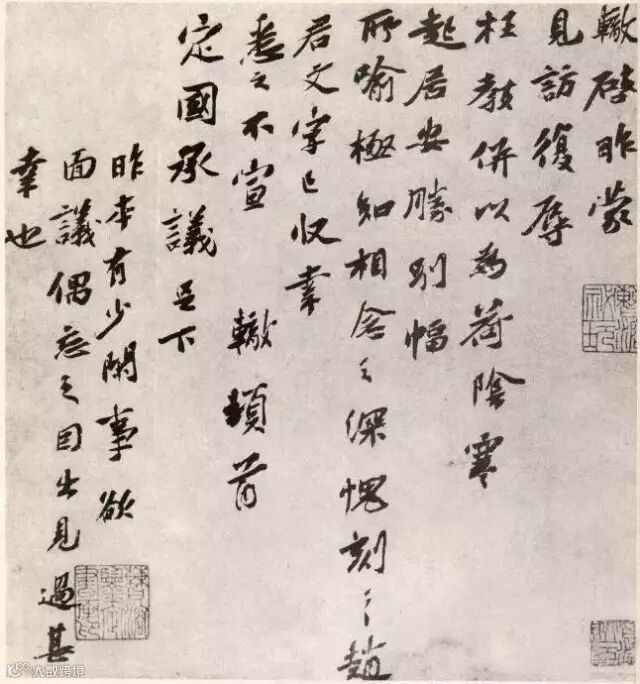 轍啓昨蒙
見訪復辱
枉教併以為荷陰寒
起居安勝別幅
所喻極知相念之深愧刻之趙
君文字已收幸
悉之不宣 轍頓首
定國承議足下
昨本有少閑事欲
面議偶忘之因出見過甚
幸也
大數跨境